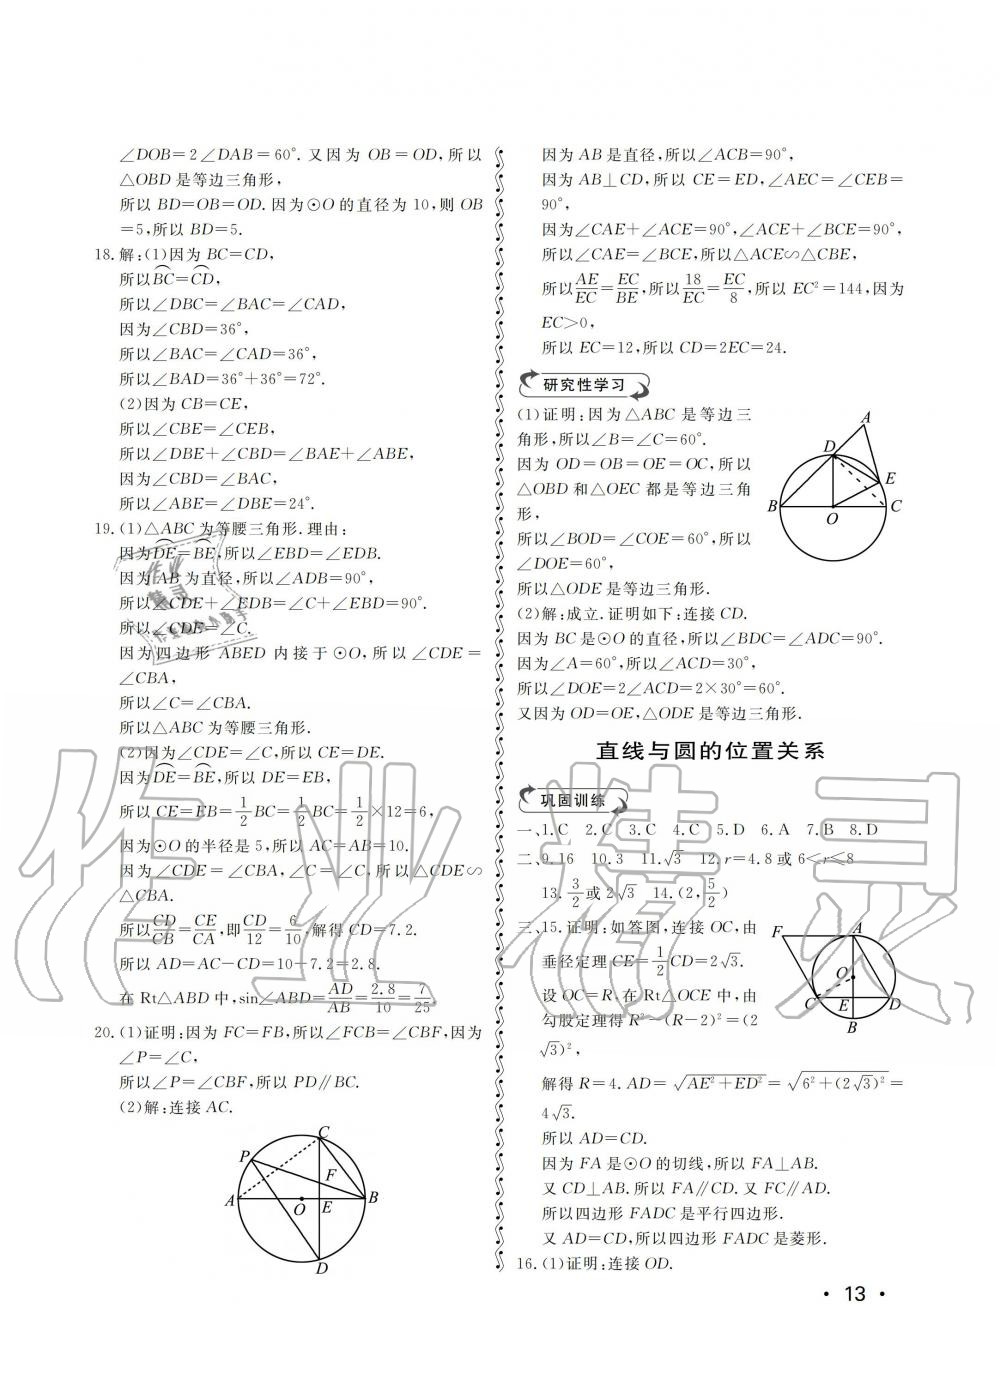 ∠DOB=2∠DAB=60°. 又因为 OB=OD,所以
△OBD 是等边三角形,
所以 BD=OB=OD. 因为⊙O 的直径为 10,则 OB
=5,所以 BD=5.
18. 解:(1)因为 BC=CD,
所以B͡C=C͡D,
所以∠DBC=∠BAC=∠CAD,
因为∠CBD=36°,
所以∠BAC=∠CAD=36°,
所以∠BAD=36°+36°=72°.
(2)因为 CB=CE,
所以∠CBE=∠CEB,
所以∠DBE+∠CBD=∠BAE+∠ABE,
因为∠CBD=∠BAC,
所以∠ABE=∠DBE=24°.
19. (1)△ABC 为等腰三角形. 理由:
因为D͡E=B͡E,所以∠EBD=∠EDB.
因为 AB 为直径,所以∠ADB=90°,
所以∠CDE+∠EDB=∠C+∠EBD=90°.
所以∠CDE=∠C.
因为四边形 ABED 内接于⊙O,所以∠CDE=
∠CBA,
所以∠C=∠CBA.
所以△ABC 为等腰三角形.
(2)因为∠CDE=∠C,所以 CE=DE.
因为D͡E=B͡E,所以 DE=EB,
所以 CE=EB=1/2 BC=1/2 BC=1/2×12=6,
因为⊙O 的半径是 5,所以 AC=AB=10.
因为∠CDE=∠CBA,∠C=∠C,所以△CDE∽
△CBA.
所以CD/CB=CE/CA,即CD/12=6/10,解得 CD=7.2.
所以 AD=AC-CD=10-7.2=2.8.
在 Rt△ABD 中,sin∠ABD=AD/AB=2.8/10=7/25
20. (1)证明:因为 FC=FB,所以∠FCB=∠CBF,因为
∠P=∠C,
所以∠P=∠CBF,所以 PD∥BC.
(2)解:连接 AC.
C
P
F
A
O
E
B
D
因为 AB 是直径,所以∠ACB=90°,
因为 AB⊥CD,所以 CE=ED,∠AEC=∠CEB=
90°,
因为∠CAE+∠ACE=90°,∠ACE+∠BCE=90°,
所以∠CAE=∠BCE,所以△ACE∽△CBE,
所以AE/EC=EC/BE,所以18/EC=EC/8,所以 EC²=144,因为
EC>0,
所以 EC=12,所以 CD=2EC=24.
研究性学习
(1)证明:因为△ABC 是等边三
角形,所以∠B=∠C=60°.
因为 OD=OB=OE=OC,所以
△OBD 和△OEC 都是等边三角
形,
所以∠BOD=∠COE=60°,所以
∠DOE=60°,
所以△ODE 是等边三角形.
A
D
E
B
O
C
(2)解:成立. 证明如下:连接 CD.
因为 BC 是⊙O 的直径,所以∠BDC=∠ADC=90°.
因为∠A=60°,所以∠ACD=30°,
所以∠DOE=2∠ACD=2×30°=60°.
又因为 OD=OE,△ODE 是等边三角形.
直线与圆的位置关系
巩固训练
一、1. C 2. C 3. C 4. C 5. D 6. A 7. B 8. D
二、9. 16 10. 3 11. √3 12. r=4.8 或 6<r≤8
13. 3/2 或 2√3 14. (2,5/2)
三、15. 证明:如答图,连接 OC,由
垂径定理 CE=1/2 CD=2√3.
设 OC=R,在 Rt△OCE 中,由
勾股定理得 R²-(R-2)²=(2
√3)²,
F
A
O
C
E
D
B
解得 R=4. AD=√(AE²+ED²)=√(6²+(2√3)²)=
4√3.
所以 AD=CD.
因为 FA 是⊙O 的切线,所以 FA⊥AB.
又 CD⊥AB. 所以 FA∥CD. 又 FC∥AD.
所以四边形 FADC 是平行四边形.
又 AD=CD,所以四边形 FADC 是菱形.
16. (1)证明:连接 OD.
· 13 ·
作业精灵